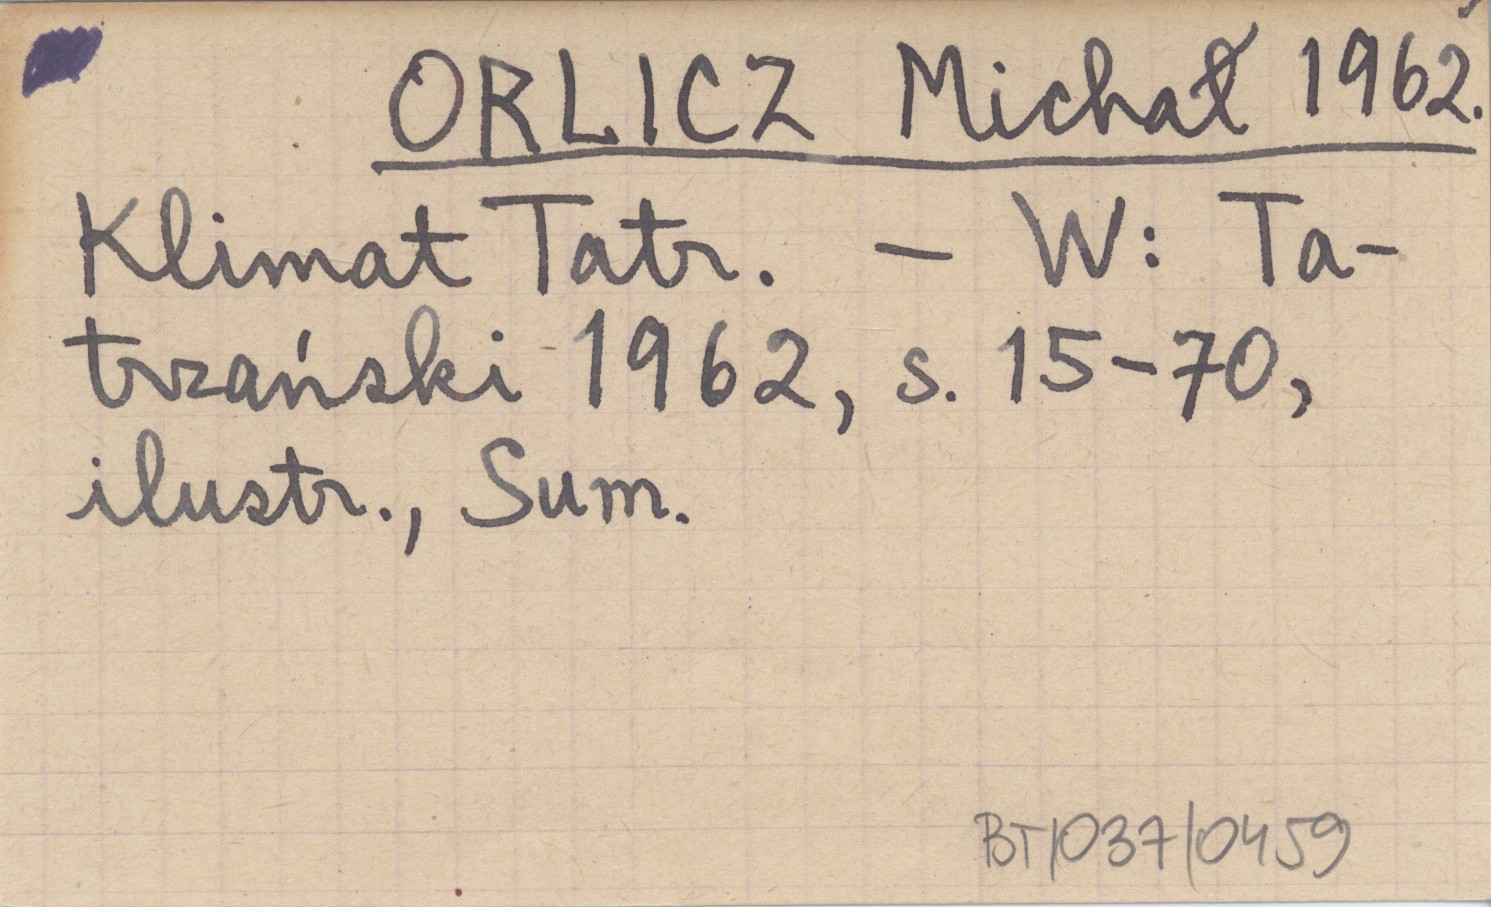 ORLICZ Michał 1962.
Klimat Tatr. – W: Ta-
trzański 1962, s. 15-70,
ilustr., Sum.
BT/037/0459